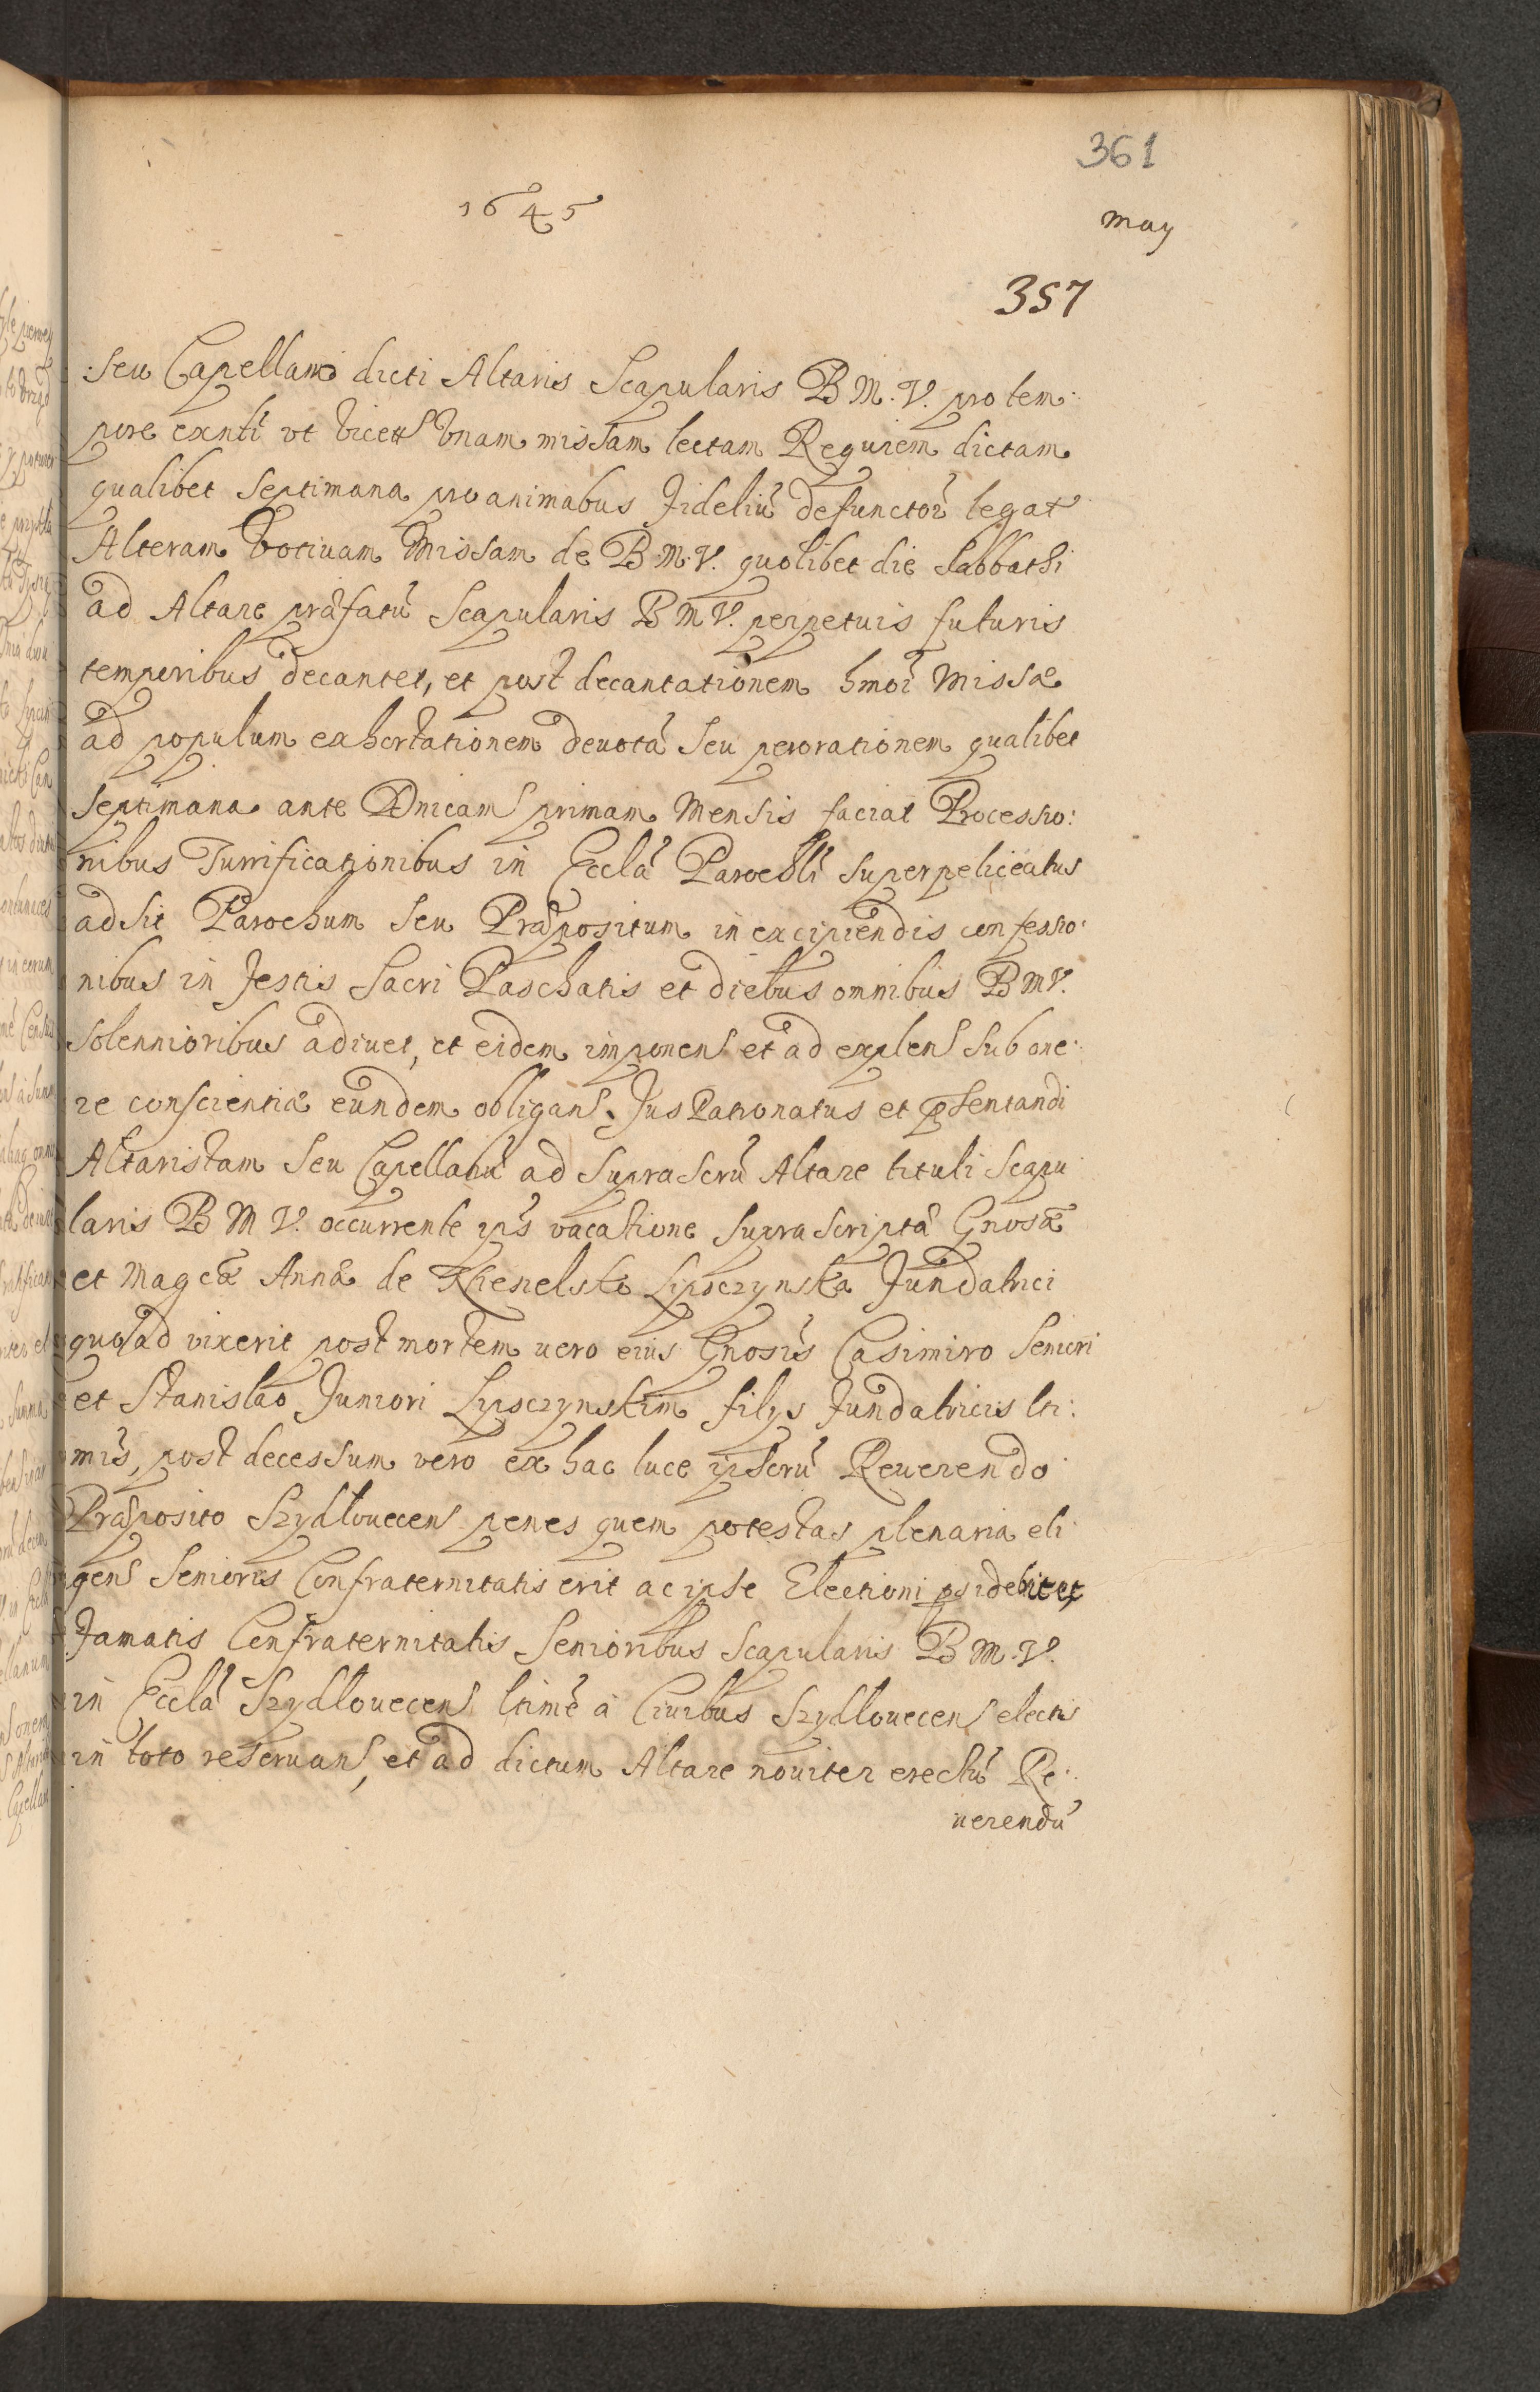 361
1645
May
357
seu Capellano dicti Altaris Scapularis B M. V. pro tem:
pore exnti ut vicett Vnam missam lectam Requiem dictam
qualibet Septimana pro animabus Fideliũ defunctor legat
Alteram Votiuam Missam de B. M. V. quolibet die Sabbathi
ad Altare præfatũ Scapularis B M V. perpetuis futuris
temporibus decantet, et post decantationem hmoi Missæ
ad populum exhortationem deuotã seu perorationem qualibet
Septimana ante Dnicam primam Mensis faciat Processio:
nibus Turrificationibus in Eccla Parochli superpeliceatus
adsit Parochum seu Præpositum in excipiendis confessio:
nibus in Festis Sacri Paschatis et diebus omnibus B M V.
Solennioribus adiuet, et eidem imponens et ad explens sub one:
re conscientiæ eundem obligans. Jus Patronatus et pñsentandi
Altaristam seu Capellanũ ad suprascrũ Altare tituli Scapu
laris B M V. occurrente ips vacatione suprascriptã Gnosæ
et Magcæ Annæ de Lipsczynska Fundatrici
quoad vixerit post mortem uero eius Gnosis Casimiro Seniori
et Stanislao Juniori Lipsczynskim filys Fundatricis lti:
mis, post decessum vero ex hac luce ipsorũ Reuerendo
Præposito Szydlouecens penes quem potestas plenaria eli
gens Senioris Confraternitatis erit ac ipse Electioni psidebit et
Famatis Confraternitatis Senioribus Scapularis B M. V.
in Eccla Szydlouecens ltime à Ciuibus Szydlouecens electis
in toto reseruans, et ad dictum Altare nouiter erectũ Re:
uerendũ